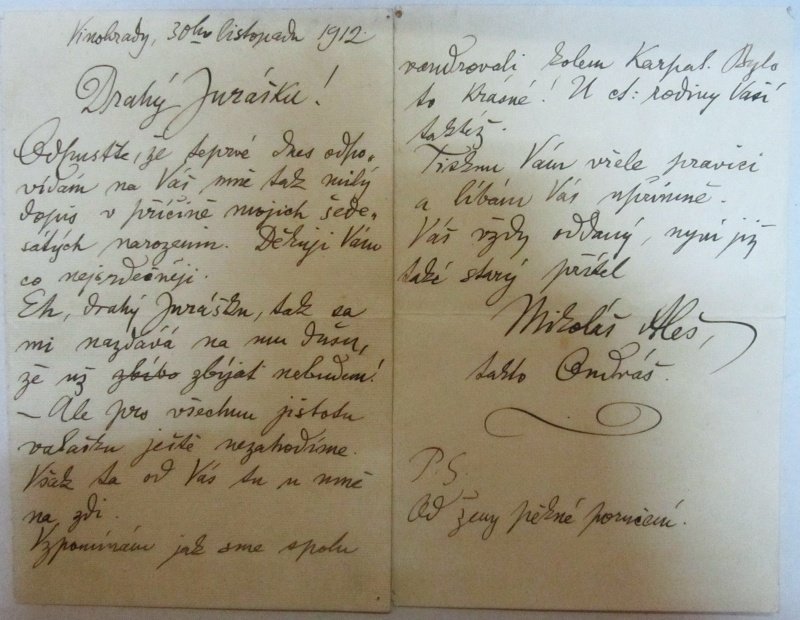 Vinohrady, 30ho listopadu 1912.
Drahý Jurášku!
Odpusťte, že teprvé dnes odpo-
vídám na Váš mně tak milý
dopis v příčině mojich šede-
sátých narozenin. Děkuji Vám
co nejsrdečněji.
Eh, drahý Jurášku, tak sa
mi nazdává na mu dušu,
že už zbíbo zbíjat nebudem!
– Ale pro všechnu jistotu
valašku ještě nezahodíme.
Však ta od Vás tu u mně
na zdi.
Vzpomínám jak sme spolu
vandrovali kolem Karpat. Bylo
to krásné! U ct: rodiny Vaší
taktéž.
Tisknu Vám vřele pravici
a líbám Vás upřímně.
Váš vždy oddaný, nyní již
také starý přítel
Mikoláš Aleš,
takto Ondráš.
P.S.
Od ženy pěkné poručení.